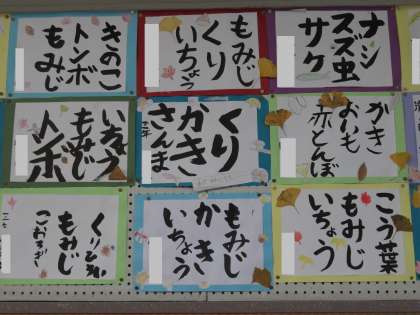 きのこ
トンボ
もみじ
もみじ
くり
いちょう
ナシ
スズ虫
サケ
いちょう
もみじ
トンボ
くり
かき
さんま
かき
おいも
赤とんぼ
くりひろい
もみじ
こおろぎ
もみじ
かき
いちょう
こう葉
もみじ
いちょう